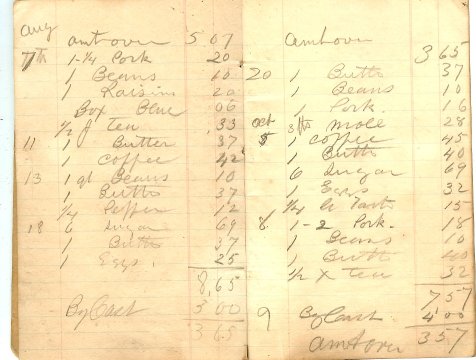 Aug
amt over 5 07
7th 1-¼ Pork 20
1 Beans 10
1 Raisins 20
Box Blue 06
½ J Tea 33
11 1 Butter 37
Coffee 42
13 1 qt Beans 10
1 Butts 37
¼ Pepper 12
18 6 Sugar 69
1 Butts 37
1 Eggs. 25
8,65
By Cast 5 00
3 65
Amt over
3 65
20 1 Butts 37
1 Beans 10
1 Pork. 16
Oct 3 Mole 28
5 1 Coffee 45
1 Butts 40
6 Sugar 69
1 Eggs 32
¼ Tart 15
8 1-2 Pork. 18
1 Beans 10
1 Butts 40
½ X Tea 32
7 57
9 By Cast. 4 00
Amt over 357